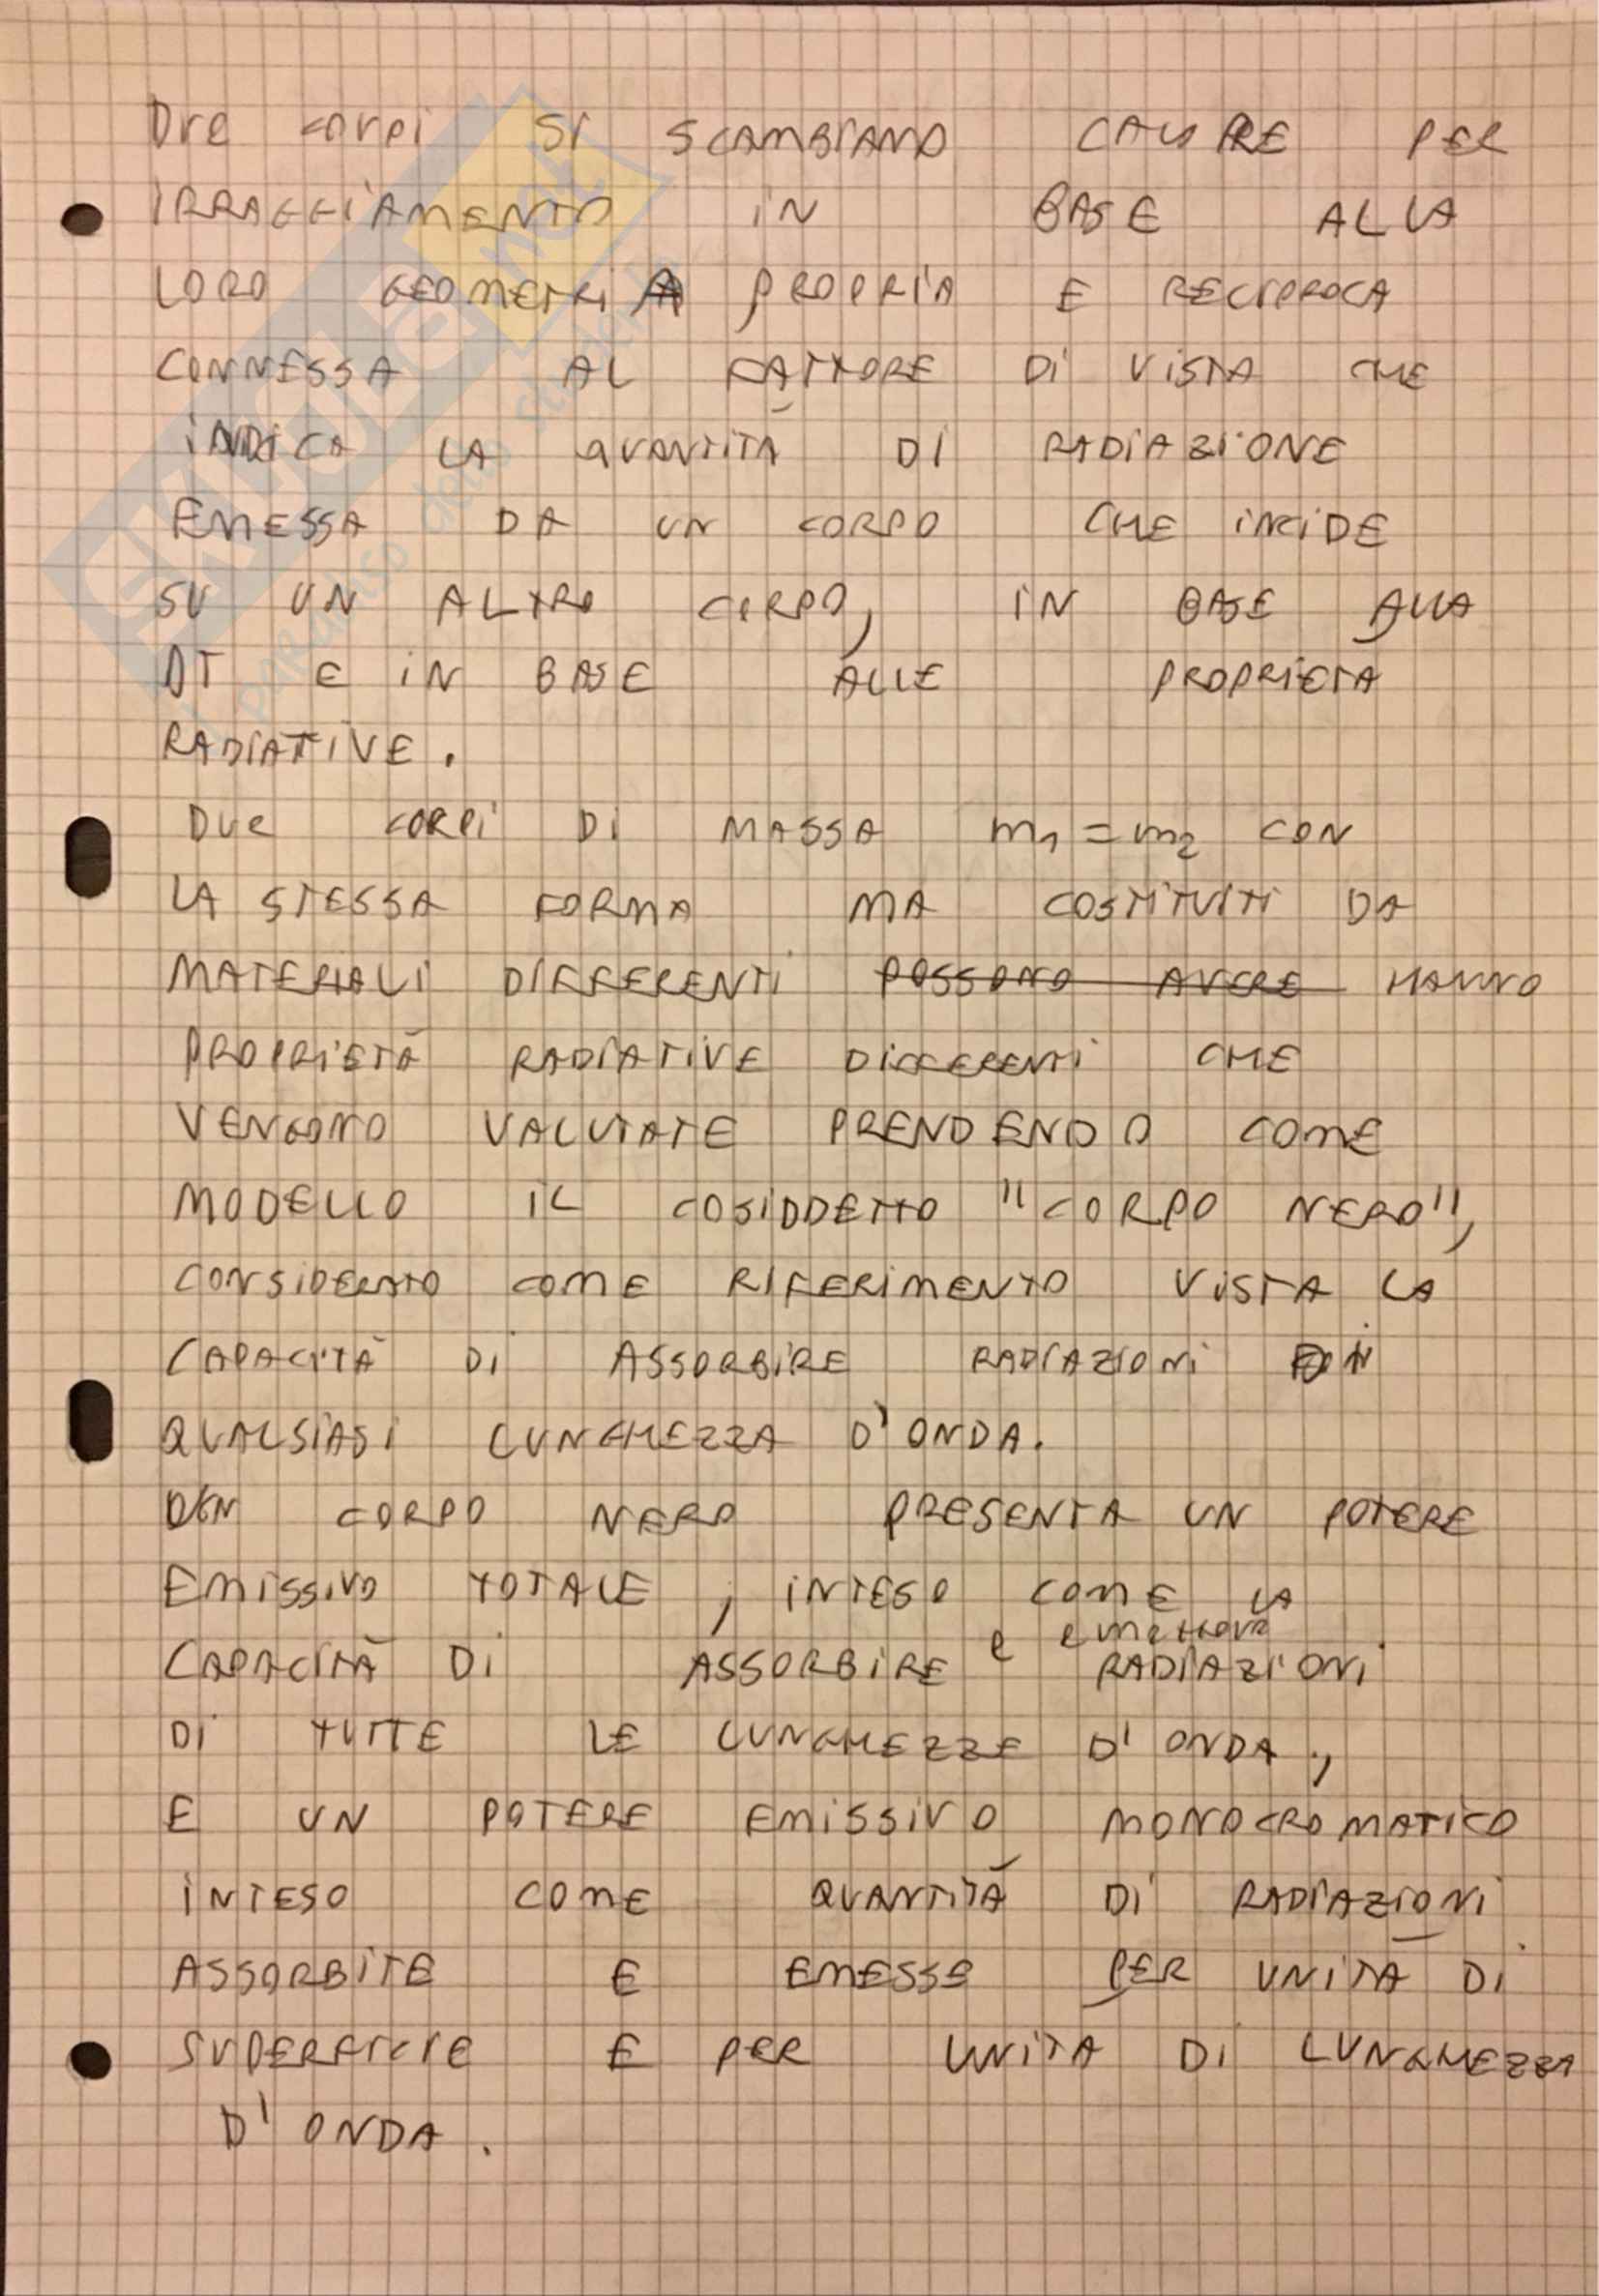 Due corpi si SCAMBIANO CALORE PER
IRRAGGIAMENTO IN BASE ALLA
LORO GEOMETRIA PROPRIA E RECIPROCA
CONNESSA AL FATTORE DI VISTA CHE
INDICA LA QUANTITÀ DI RADIAZIONE
EMESSA DA UN CORPO CHE INCIDE
SU UN ALTRO CORPO, IN BASE ALLA
DT E IN BASE ALLE PROPRIETA
RADIATIVE.
Due CORPI DI MASSA m1 = m2 CON
LA STESSA FORMA MA COSTITUITI DA
MATERIALI DIFFERENTI POSSONO AVERE HANNO
PROPRIETÀ RADIATIVE DIFFERENTI CHE
VENGONO VALUTATE PRENDENDO COME
MODELLO IL COSIDDETTO "CORPO NERO",
CONSIDERATO COME RIFERIMENTO VISTA LA
CAPACITÀ DI ASSORBIRE RADIAZIONI DI
QUALSIASI LUNGHEZZA D'ONDA.
UN CORPO NERO PRESENTA UN POTERE
EMISSIVO TOTALE, INTESO COME LA
CAPACITÀ DI ASSORBIRE e emettere RADIAZIONI
DI TUTTE LE LUNGHEZZE D'ONDA,
E UN POTERE EMISSIVO MONOCROMATICO
INTESO COME QUANTITÀ DI RADIAZIONI
ASSORBITE E EMESSE PER UNITÀ DI
SUPERFICIE E PER UNITÀ DI LUNGHEZZA
D'ONDA.